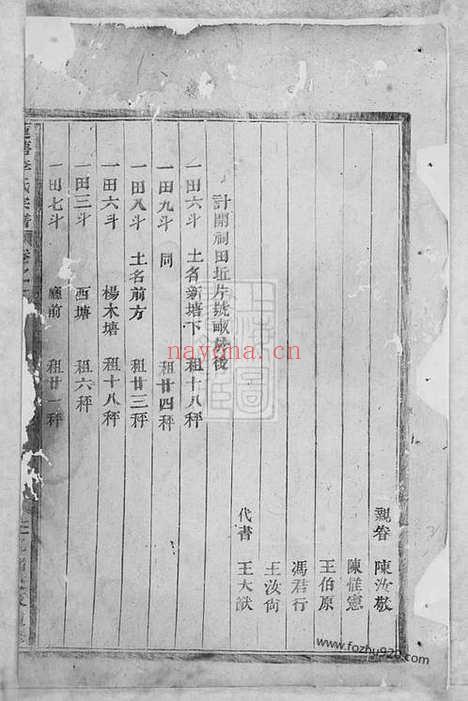 親眷 陳汝敬
陳惟憲
王伯原
馮君行
王汝尙
代書 王大猷
計開祠田坵片號畝
一田六斗 土名新塘下 租十八秤
一田九斗 同 租廿四秤
一田八斗 土名前方 租廿三秤
一田六斗 楊木塘 租十八秤
一田三斗 西塘 租六秤
一田七斗 廳前 租廿一秤
nayona.cn
www.fozhu920.com